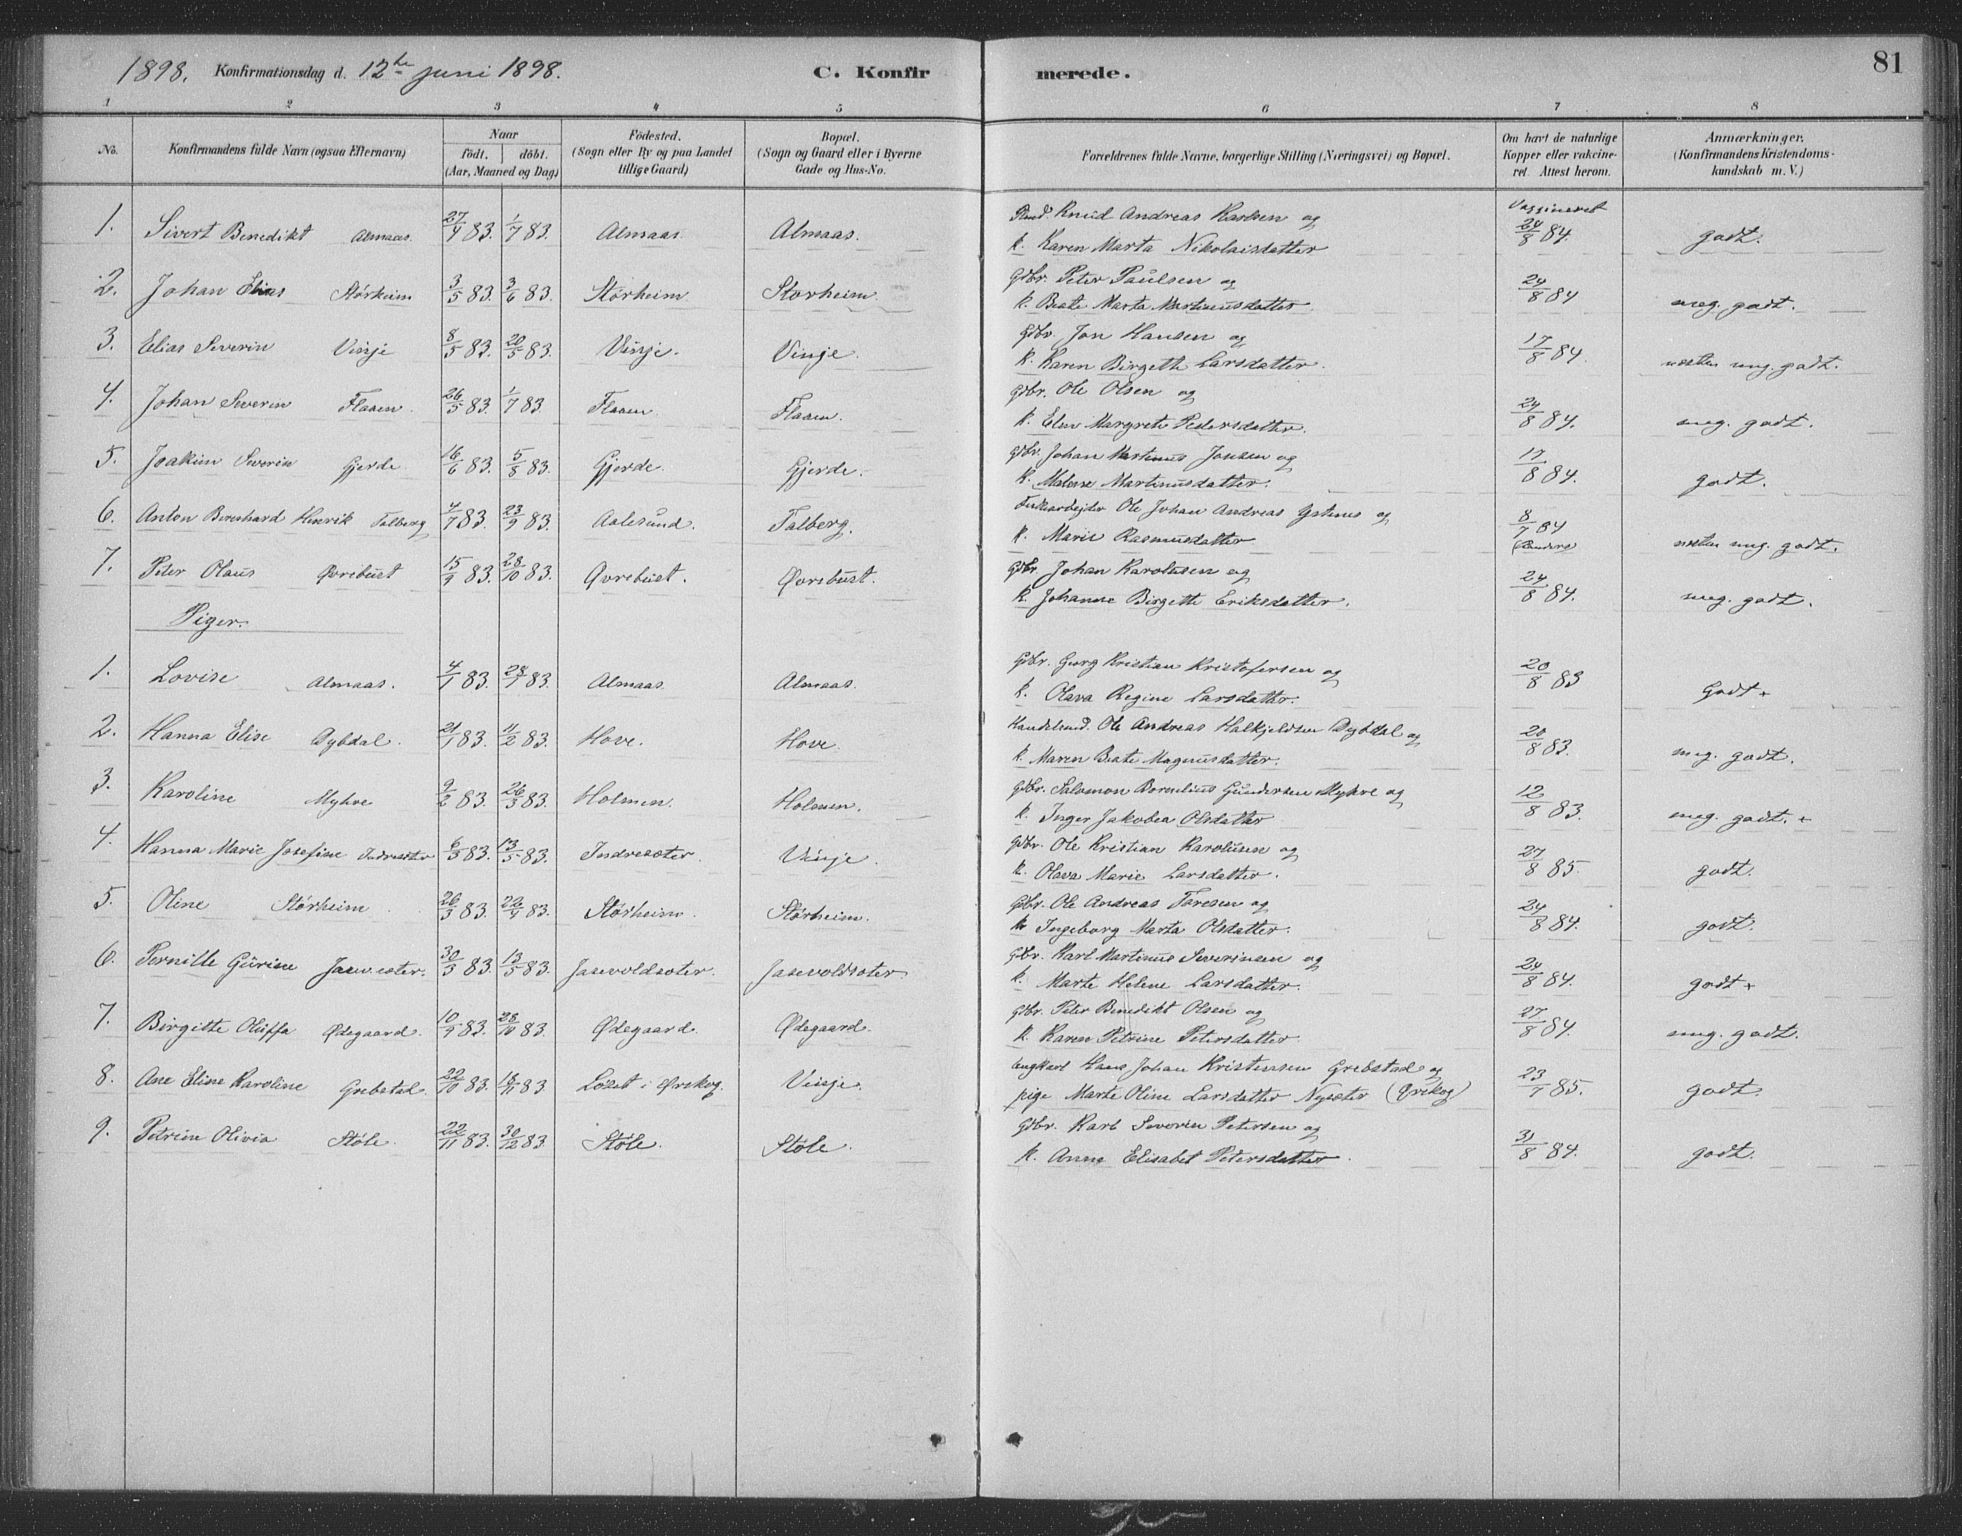 1898. Konfirmationsdag d. 12te juni 1898. C. Konfirmerede. 81
1 2 3 4 5 6 7 8
No. Konfirmandens fulde Navn (ogsaa Efternavn) Naar födt. döbt. (Aar, Maaned og Dag) Födested. (Sogn eller By og paa Landet tillige Gaard) Bopæl. (Sogn og Gaard eller i Byerne Gade og Hus-No. Forældrenes fulde Navne, borgerlige Stilling (Næringsvei) og Bopæl. Om havt de naturlige Kopper eller vakcineret. Attest herom. Anmærkninger. (Konfirmandens Kristendomskundskab m. V.)
1. Sivert Benedikt Almaas 27/4 83. 1/7 83. Almaas Almaas. Knud Andreas Karlsen og
k. Karen Marta Nikolaisdatter 24/8 84. godt.
2. Johan Elias Störheim 3/5 83. 3/6 83. Störheim Störheim. Gdbr. Peter Paulsen og
k. Beate Marta Martinusdatter. 24/8 84 meg. godt.
3. Elias Severin Vinje 8/5 83. 20/5 83. Vinje. Vinje. Gdbr. Jon Hansen og
k. Karen Birgitte Larsdatter. 17/8 84. næsten meg. godt.
4. Johan Severin Flaaen. 26/5 83. 1/7 83. Flaaen. Flaaen. Gdbr. Ole Olsen og
k. Elen Margrete Pedersdatter. 24/8 84. meg. godt.
5. Joakim Severin Gjerde. 16/6 83. 5/8 83. Gjerde. Gjerde. Gdbr. Johan Martinus Jonsen og
k. Malene Martinusdatter. 17/8 84. godt.
6. Anton Bernhard Henrik Talberg 4/7 83. 23/9 83. Aalesund. Talberg. Ole Johan Andreas og
k. Marie Rasmusdatter 8/7 84 næsten meg. godt.
7. Peter Olaus Övrebust 15/9 83. 28/10 83. Övrebust. Övrebust. Gdbr. Johan Karolusen og
k. Johanne Birgitte Eriksdatter. 24/8 84. meg. godt.
Piger.
1. Lovise Almaas. 4/1 83. 28/1 83. Almaas Almaas. Gdbr. Georg Kristian Kristofersen og
k. Olava Regine Larsdatter. 20/8 83 Godt +
2. Hanna Elise Dybdal. 21/1 83. 11/2 83. Hove. Hove. Ole Andreas Halkjeldsen Dybdal og
k. Maren Beate Magnusdatter. 20/8 83. meg. godt.
3. Karoline Myhre 9/2 83. 26/3 83. Holmen. Holmen. Gdbr. Salomon Kornelius Gundersen Myhre og
k. Inger Jakobea Olsdatter 12/8 83. meg. godt. +
4. Hanna Marie Josefine Indresæter 6/3 83. 13/5 83. Indresæter. Vinje. Gdbr. Ole Kristian Karolusen og
k. Olava Marie Larsdatter. 27/8 85. godt.
5. Oline Störheim. 26/3 83. 22/4 83. Störheim. Störheim. Gdbr. Ole Andreas Taresen og
k. Ingeborg Marta Olsdatter. 24/8 84. godt.
6. Pernille Gurine 30/3 83. 13/5 83. Jasevoldsæter. Jasevoldsæter Gdbr. Karl Martinus Severinsen og
k. Marte Helene Larsdatter. 24/8 84. godt +
7. Birgitte Oluffa Ödegaard. 10/9 83. 28/10 83. Ödegaard. Ödegaard. Gdbr. Peter Benedikt Olsen og
k. Karen Petrine Petersdatter. 27/8 84. meg. godt.
8. Ane Eline Karoline Grebstad. 22/10 83. 18/11 83 i Ørskog. Vinje. Ungkarl Hans Johan Kristensen Grebstad og
pige Marte Oline Larsdatter Nysæter (Ørskog) 23/7 85. godt.
9. Petrine Olivia Støle. 22/11 83. 30/12 83. Støle. Støle. Gdbr. Karl Severin Petersen og
k. Anne Elisabet Petersdatter. 31/8 84. godt.